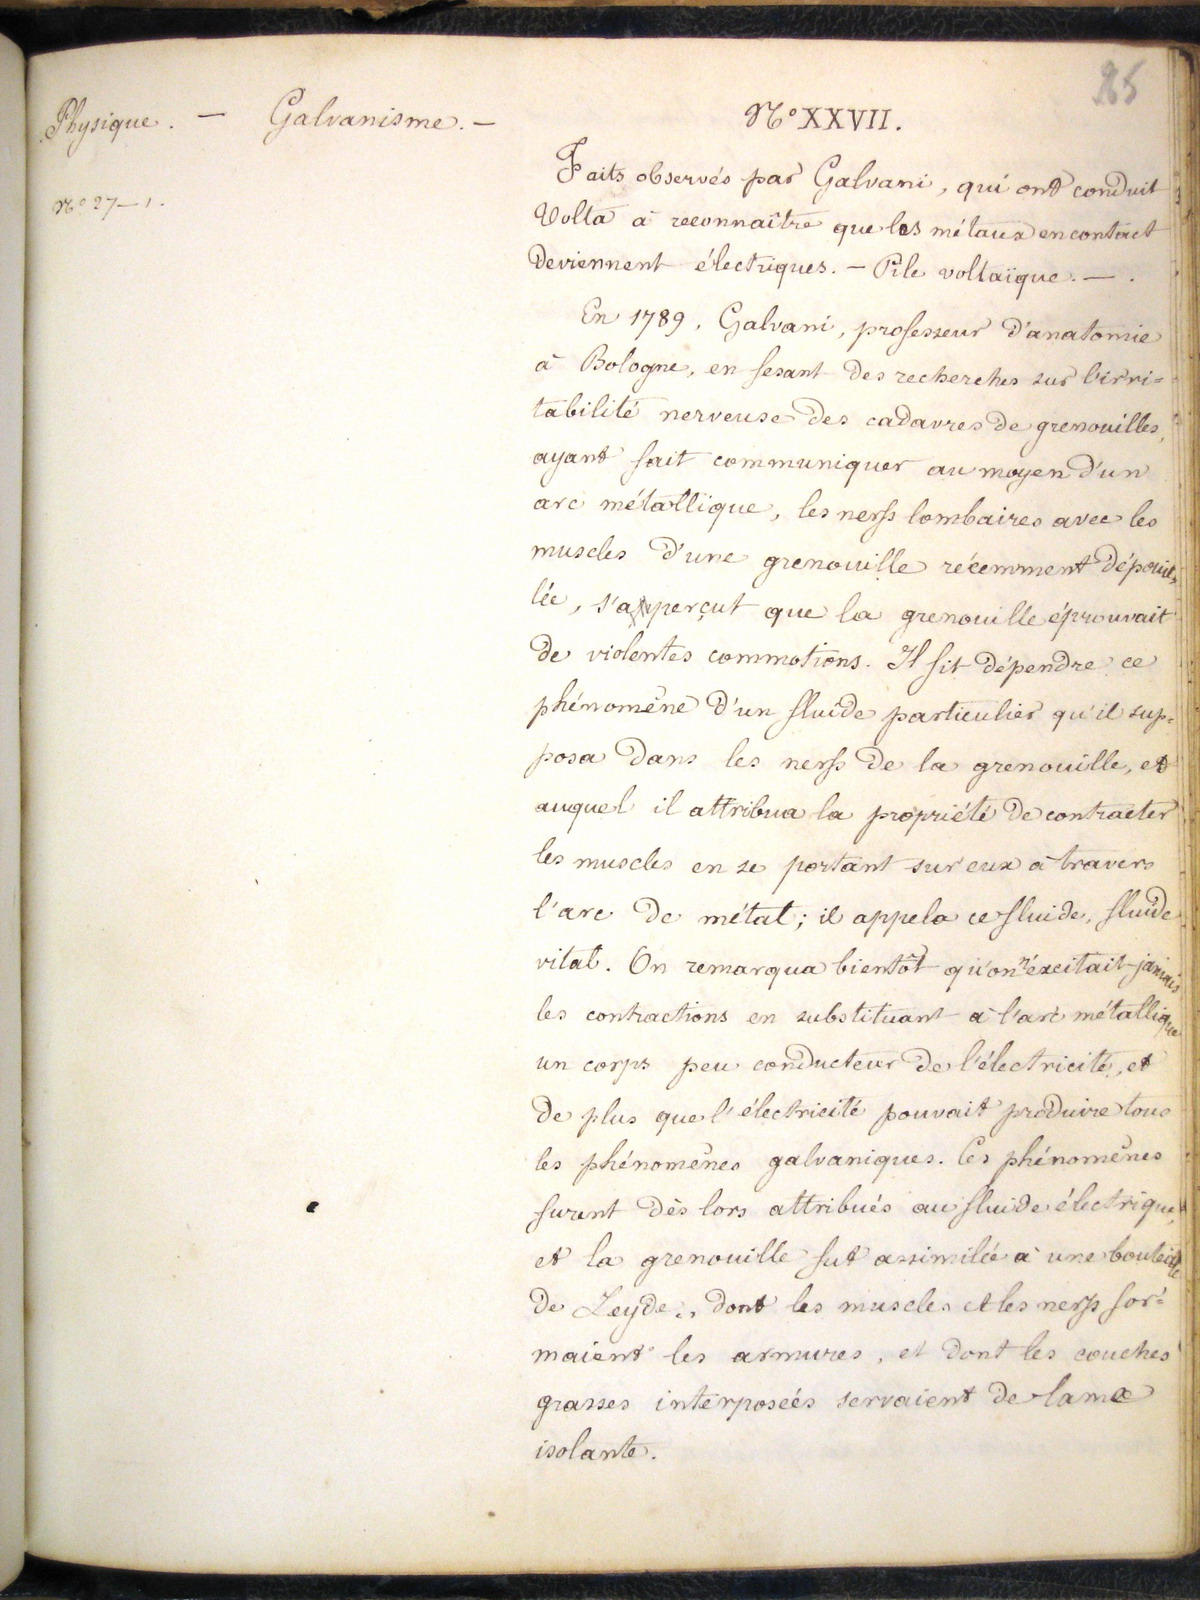 85
Physique. — Galvanisme. —
N° 27 — 1.
N° XXVII.
Faits observés par Galvani, qui ont conduit
Volta à reconnaître que les métaux en contact
deviennent électriques. — Pile voltaïque. — .
En 1789, Galvani, professeur d'anatomie
à Bologne, en fesant des recherches sur l'irri=
tabilité nerveuse des cadavres de grenouilles,
ayant fait communiquer au moyen d'un
arc métallique, les nerfs lombaires avec les
muscles d'une grenouille récemment dépouil=
lée, s'aperçut que la grenouille éprouvait
de violentes commotions. Il fit dépendre ce
phénomène d'un fluide particulier qu'il sup=
posa dans les nerfs de la grenouille, et
auquel il attribua la propriété de contracter
les muscles en se portant sur eux à travers
l'arc de métal; il appela ce fluide, fluide
vital. On remarqua bientôt qu'on n'éxcitait jamais
les contractions en substituant à l'arc métallique
un corps peu conducteur de l'électricité, et
de plus que l'électricité pouvait produire tous
les phénomènes galvaniques. Ces phénomènes
furent dès lors attribués au fluide électrique,
et la grenouille fut assimilée à une bouteille
de Leyde, dont les muscles et les nerfs for=
maient les armures, et dont les couches
grasses interposées servaient de lame
isolante.